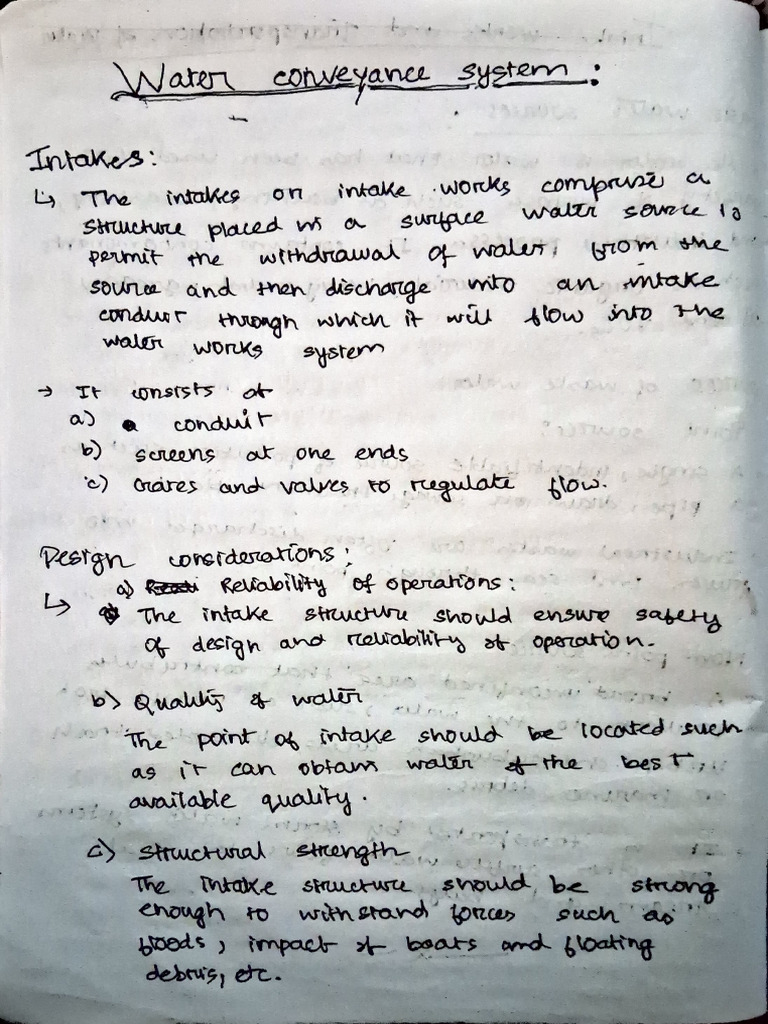 Water conveyance system:
Intakes:
↳ The intakes or intake works comprise a
structure placed in a surface water source to
permit the withdrawal of water, from the
source and then discharge into an intake
conduit through which it will flow into the
water works system
→ It consists of
a) conduit
b) screens at one ends
c) Grates and valves to regulate flow.
Design considerations:
a) Reliability of operations:
↳ The intake structure should ensure safety
of design and reliability of operation.
b) Quality of water
The point of intake should be located such
as it can obtain water of the best
available quality.
c) Structural strength
The intake structure should be strong
enough to withstand forces such as
floods, impact of boats and floating
debris, etc.